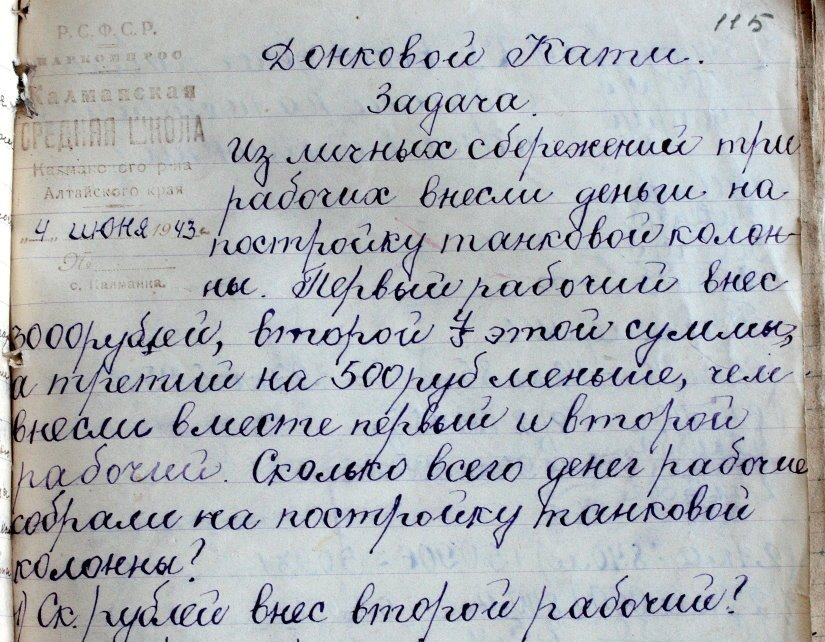 115
Р.С.Ф.С.Р.
НАРКОМПРОС
Калманская
СРЕДНЯЯ ШКОЛА
Калманского р-на
Алтайского края
„4„ июня 1943 г.
№
с. Калманка.
Донковой Кати.
Задача.
Из личных сбережений три
рабочих внесли деньги на
постройку танковой колон-
ны. Первый рабочий внес
3000 рублей, второй этой суммы,
а третий на 500 руб меньше, чем
внесли вместе первый и второй
рабочий. Сколько всего денег рабочие
собрали на постройку танковой
колонны?
1) Ск. рублей внес второй рабочий?